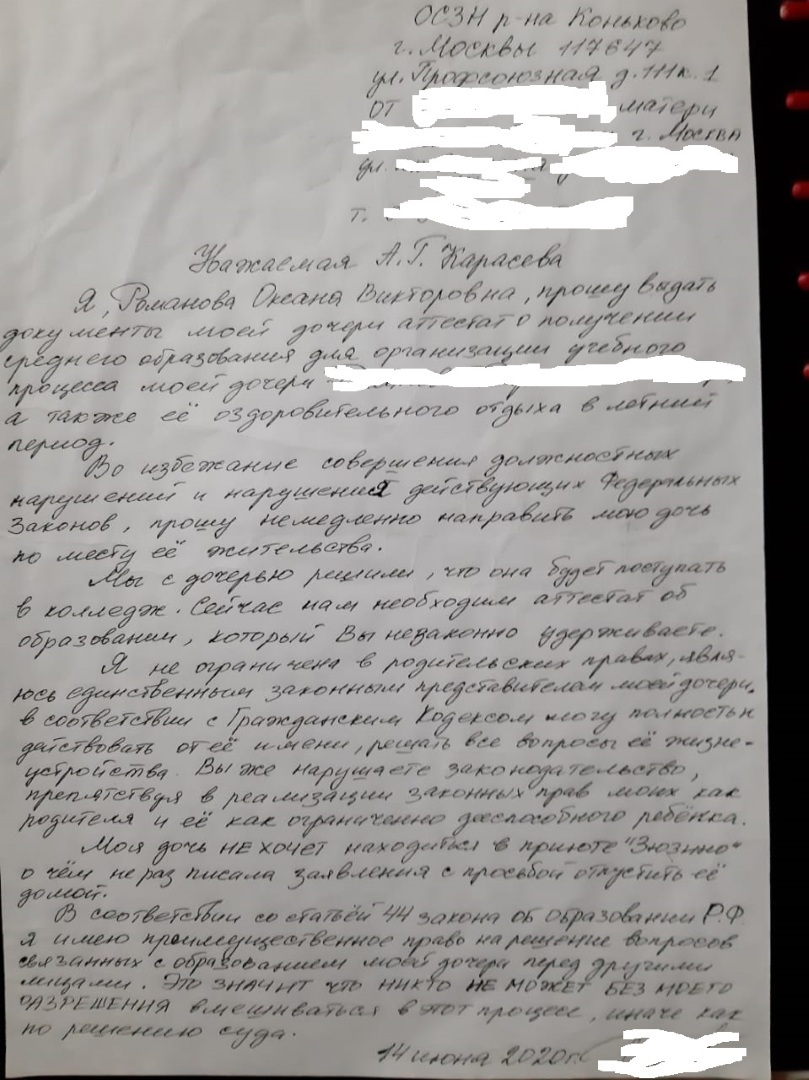 ОСЗН р-на Коньково
г. Москвы 117647
ул. Профсоюзная д. 111 к. 1
от матери
г. Москва
ул.
т.
Уважаемая А.Г. Карасева
Я, Романова Оксана Викторовна, прошу выдать
документы моей дочери аттестат о получении
среднего образования для организации учебного
процесса моей дочери
а также её оздоровительного отдыха в летний
период.
Во избежание совершения должностных
нарушений и нарушения действующих Федеральных
Законов, прошу немедленно направить мою дочь
по месту её жительства.
Мы с дочерью решили, что она будет поступать
в колледж. Сейчас нам необходим аттестат об
образовании, который Вы незаконно удерживаете.
Я не ограничена в родительских правах, явля-
юсь единственным законным представителем моей дочери,
в соответствии с Гражданским Кодексом могу полностью
действовать от её имени, решать все вопросы её жизне-
устройства. Вы же нарушаете законодательство,
препятствуя в реализации законных прав моих как
родителя и её как ограниченно дееспособного ребёнка.
Моя дочь НЕ ХОЧЕТ находиться в приюте "Зюзино"
о чём не раз писала заявления с просьбой отпустить её
домой.
В соответствии со статьёй 44 закона об образовании Р.Ф.
я имею преимущественное право на решение вопросов
связанных с образованием моей дочери перед другими
лицами. Это ЗНАЧИТ ЧТО НИКТО НЕ МОЖЕТ БЕЗ МОЕГО
РАЗРЕШЕНИЯ вмешиваться в этот процесс, иначе как
по решению суда.
14 июня 2020г.